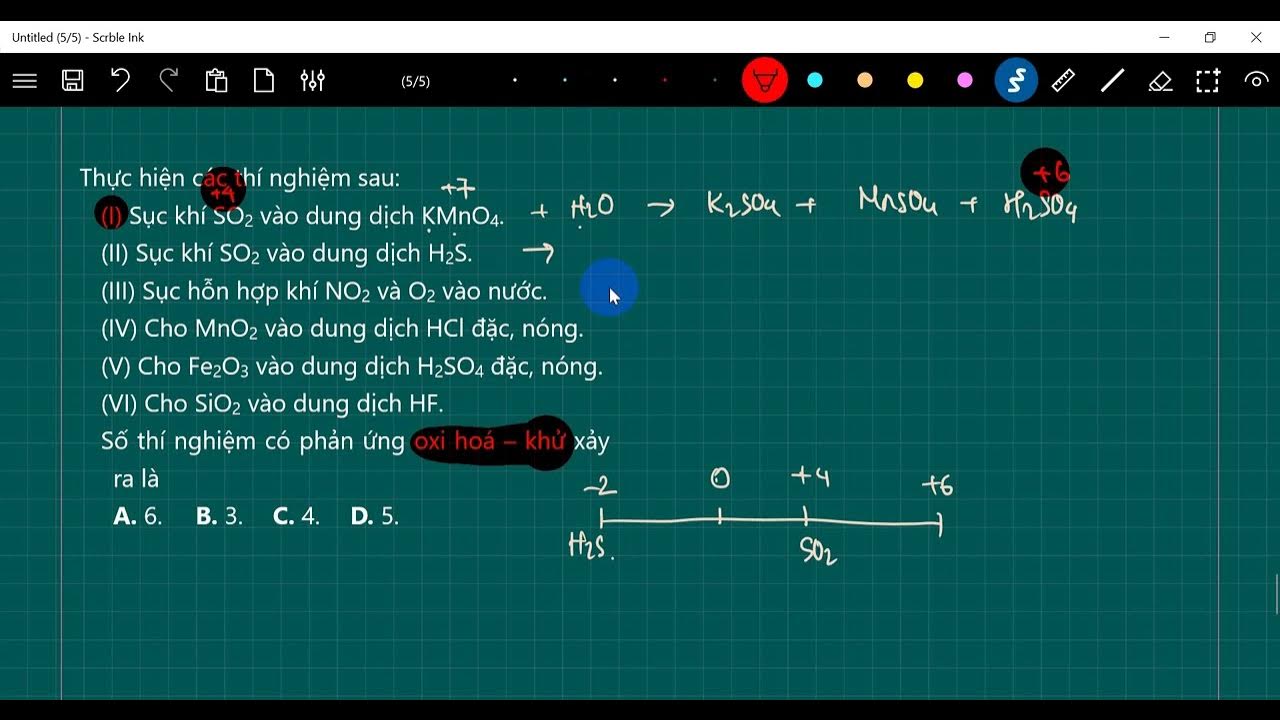 Untitled (5/5) - Scrble Ink
(5/5)
Thực hiện các thí nghiệm sau:
+4 +7 +6
(I) Sục khí SO2 vào dung dịch KMnO4. + H2O → K2SO4 + MnSO4 + H2SO4
(II) Sục khí SO2 vào dung dịch H2S. →
(III) Sục hỗn hợp khí NO2 và O2 vào nước.
(IV) Cho MnO2 vào dung dịch HCl đặc, nóng.
(V) Cho Fe2O3 vào dung dịch H2SO4 đặc, nóng.
(VI) Cho SiO2 vào dung dịch HF.
Số thí nghiệm có phản ứng oxi hoá – khử xảy
ra là
A. 6. B. 3. C. 4. D. 5.
-2 0 +4 +6
H2S. SO2